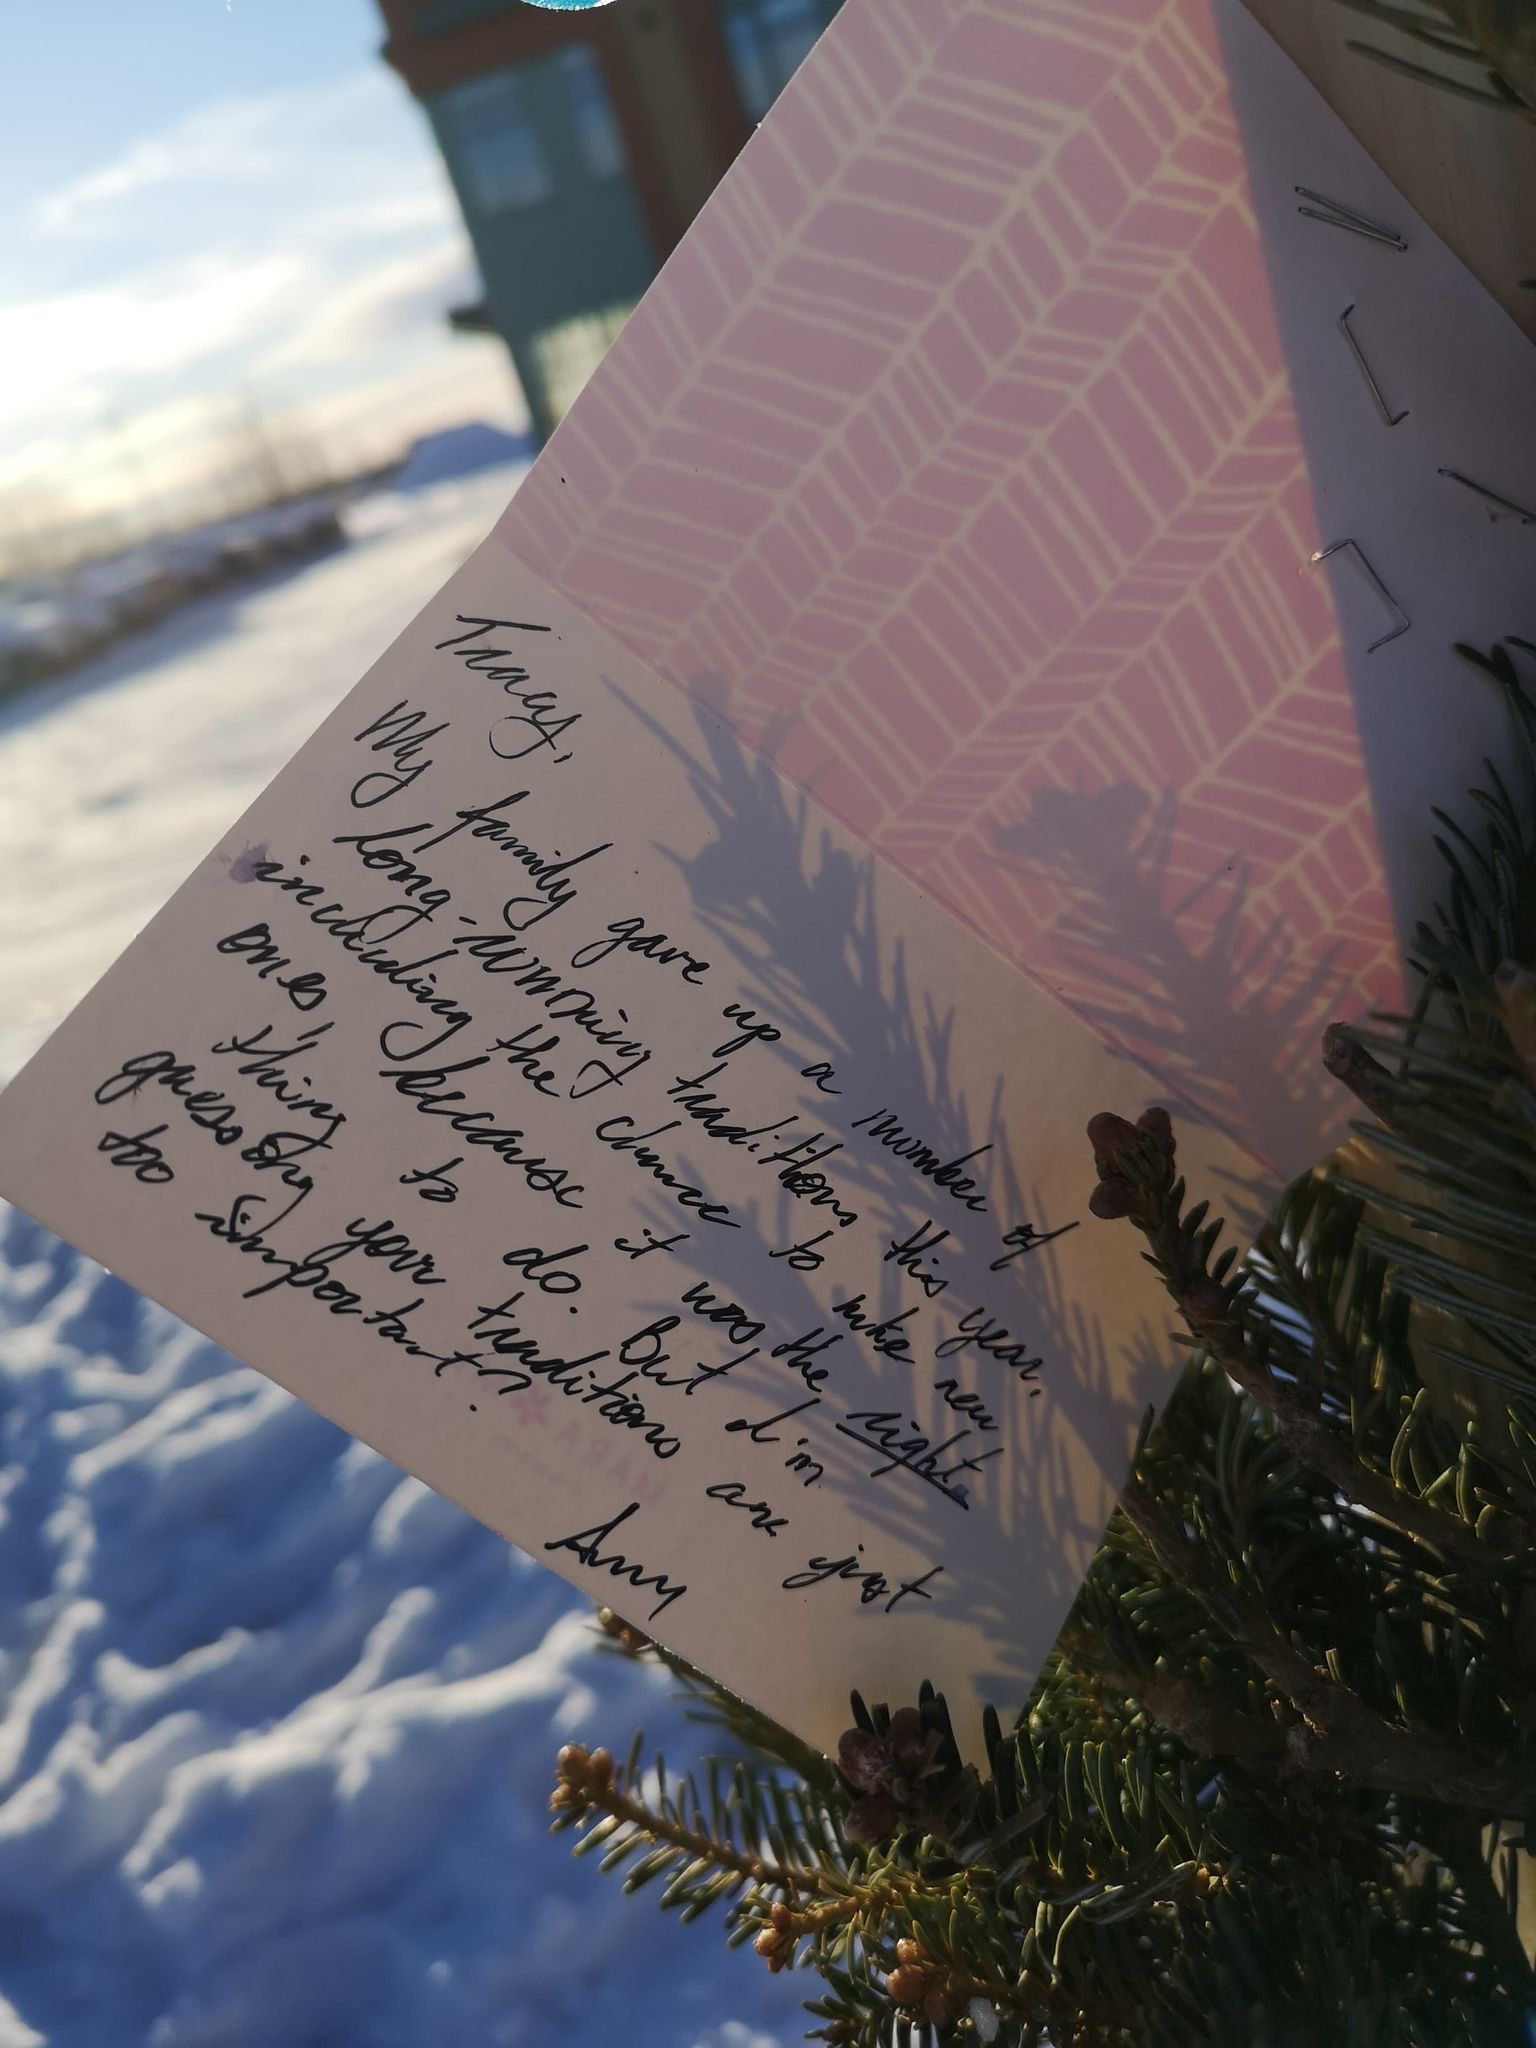 Tracy,
My family gave up a number of
long-running traditions this year,
including the chance to make new
ones, because it was the right
thing to do. But I'm
guessing your traditions are just
too important?
Amy